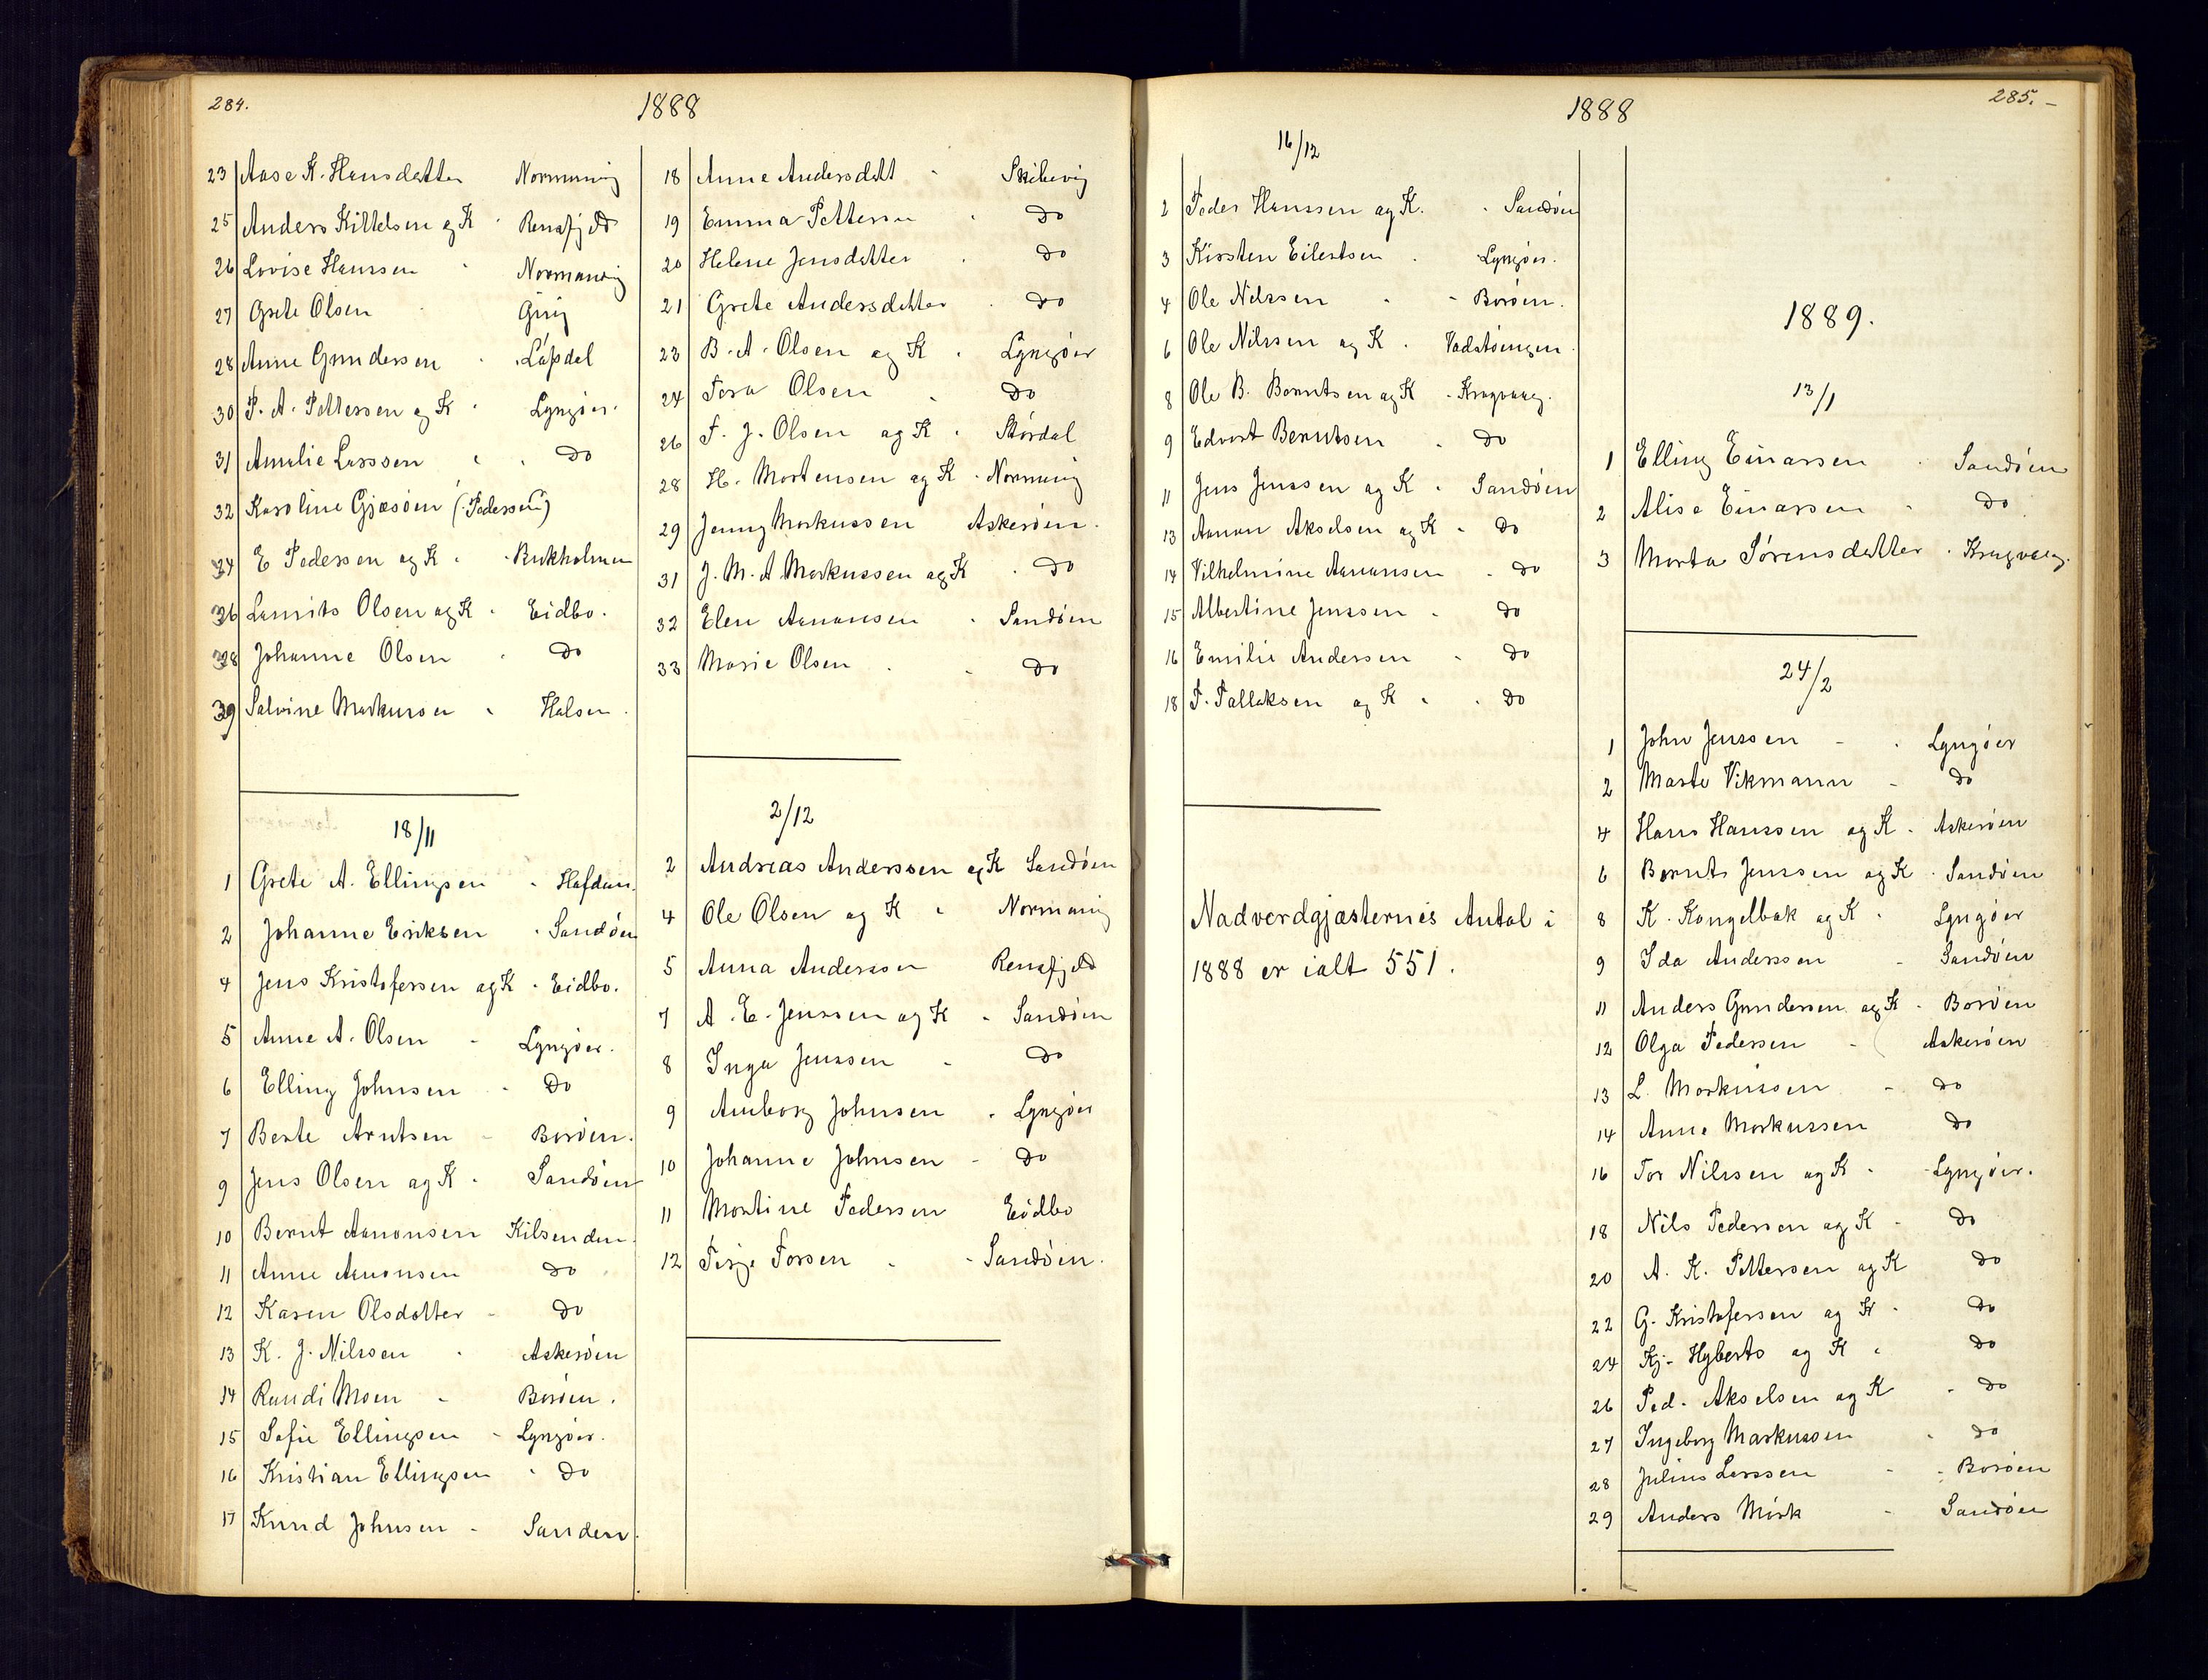 284.
1888
23 Aase K. Hansdatter Normanvig
25 Anders Kittelsen og K Rensfjeld
26 Lovise Hanssen Normanvig
27 Grete Olsen Gjvig
28 Anne Gundersen Lápdal
30 P. A. Pettersen og K Lyngøer.
31 Amalie Larssen Do
32 Karoline Gjæsøen (Pedersen)
34 E Pedersen og K Bukholmen
36 Laurits Olsen og K Eidbo.
38 Johanne Olsen Do
39 Salvine Markussen Halsen
18/11
1 Grete A. Ellingsen Hafdam.
2 Johanne Eriksen Sandøen
4 Jens Kristofersen og K Eidbo.
5 Anne A. Olsen Lyngøer.
6 Elling Johnsen Do
7 Berte Arntsen Borøen.
9 Jens Olsen og K Sandøen
10 Bernt Aanonsen Kilsenden.
11 Anne Aanonsen Do
12 Karen Olsdatter Do
13 K. J. Nilssen Askerøen
14 Randi Moen Borøen.
15 Sofie Ellingsen Lyngøer.
16 Kristian Ellingsen Do
17 Knud Johnsen Sanden.
18 Anne Andersdatt Skibevig
19 Emma Petterson Do
20 Helene Jensdatter Do
21 Grete Andersdatter Do
23 B. A. Olsen og K Lyngøer
24 Tora Olsen Do
26 F. J. Olsen og K Stórdal
28 H. Mortensen og K Normanvig
29 Jenny Markussen Askerøen.
31 J. M. A Markussen og K Do
32 Elen Aanonsen Sandøen
33 Marie Olsen Do
2/12
2 Andreas Anderssen og K Sandøen
4 Ole Olsen og K Normanvig
5 Anna Anderssen Rensfjeld
7 A. E. Jenssen og K Sandøen
8 Inga Jenssen Do
9 Amborg Johnsen Lyngøer
10 Johanne Johnsen Do
11 Martine Pedersen Eidbo
12 Terje Torsen Sandøen.
1888
285.
16/12
2 Peder Hanssen og K. Sandøen
3 Kirsten Eilertsen Lyngøer.
4 Ole Nilssen Borøen.
6 Ole Nilssen og K Vadstøengen.
8 Ole B. Berntsen og K Kragvaag.
9 Edvart Berntsen Do
11 Jens Jenssen og K Sandøen
13 Aanon Akselsen og K Do
14 Vilhelmine Aanonsen Do
15 Albertine Jenssen Do
16 Emilie Andersen Do
18 T. Tallaksen og K Do
Nadverdgjæsternes Antal i
1888 er ialt 551.
1889.
13/1
1 Elling Einarsen Sandøen
2 Alise Einarsen Do
3 Marta Sørensdatter Kragvaag.
24/2
1 John Jenssen Lyngøer
2 Marte Vikmann Do
4 Hans Hanssen og K Askerøen
6 Bernt Jenssen og K Sandøen
8 K. Kongelbak og K Lyngøer
9 Ida Anderssen Sandøen
11 Anders Gundersen og K Borøen
12 Olga Pedersen Askerøen
13 L. Markussen Do
14 Anne Markussen Do
16 Tor Nilssen og K Lyngøer.
18 Nils Pedersen og K Do
20 A. K. Pettersen og K Do
22 G. Kristofersen og K Do
24 Kj. Hyberts og K Do
26 Ped. Akselsen og K Do
27 Ingeborg Markussen Do
28 Julius Larssen Borøen
29 Anders Mørk Sandøen